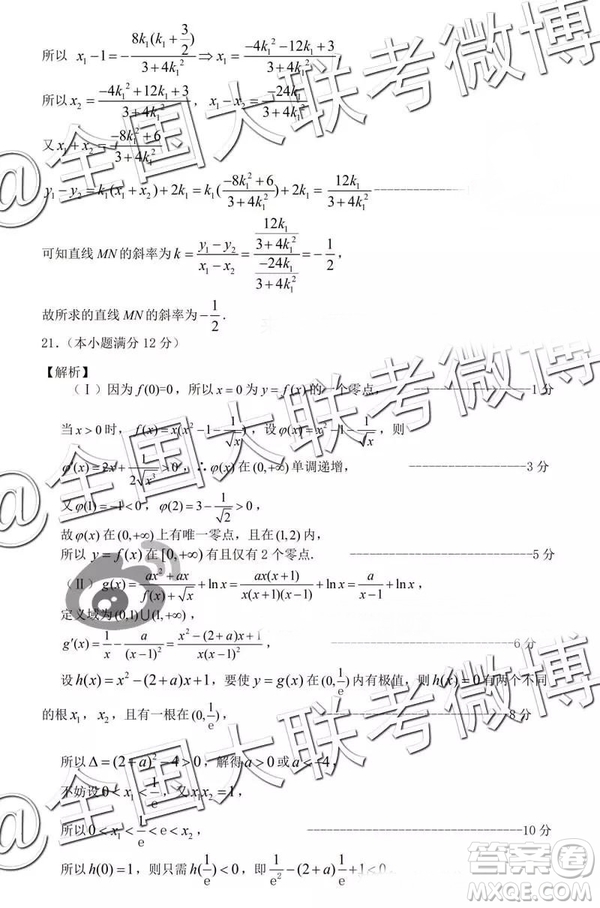 所以 x₁-1=-8k₁(k₁+3/2)/(3+4k₁²)⇒x₁=(-4k₁²-12k₁+3)/(3+4k₁²)
所以 x₂=(-4k₁²+12k₁+3)/(3+4k₁²)，x₁-x₂=-24k₁/(3+4k₁²)
又 x₁+x₂=(-8k₁²+6)/(3+4k₁²)
y₁-y₂=k₁(x₁+x₂)+2k₁=k₁((-8k₁²+6)/(3+4k₁²))+2k₁=12k₁/(3+4k₁²) --------------
可知直线 MN 的斜率为 k=(y₁-y₂)/(x₁-x₂)=(12k₁/(3+4k₁²))/(-24k₁/(3+4k₁²))=-1/2，
故所求的直线 MN 的斜率为-1/2.
21.（本小题满分 12 分）
【解析】
（Ⅰ）因为 f(0)=0，所以 x=0 为 y=f(x) 的一个零点, --------------1 分
当 x>0 时，f(x)=x(x²-1-1/√x)，设 φ(x)=x²-1-1/√x，则
φ'(x)=2x+1/(2√x³)>0，∴φ(x) 在(0,+∞) 单调递增， --------------3 分
又 φ(1)=-1<0，φ(2)=3-1/√2>0，
故 φ(x) 在(0,+∞) 上有唯一零点，且在(1,2) 内，
所以 y=f(x) 在[0,+∞) 有且仅有 2 个零点. --------------5 分
（Ⅱ）g(x)=(ax²+ax)/(f(x)+√x)+ln x=ax(x+1)/(x(x+1)(x-1))+ln x=a/(x-1)+ln x，
定义域为(0,1)∪(1,+∞)，
g'(x)=1/x-a/(x-1)²=(x²-(2+a)x+1)/(x(x-1)²)， --------------6 分
设 h(x)=x²-(2+a)x+1，要使 y=g(x) 在(0,1/e) 内有极值，则 h(x)=0 有两个不同
的根 x₁，x₂，且有一根在(0,1/e)， --------------8 分
所以 Δ=(2+a)²-4>0，解得 a>0 或 a<-4，
不妨设 0<x₁<1/e，又 x₁x₂=1，
所以 0<x₁<1/e<e<x₂， --------------10 分
所以 h(0)=1，则只需 h(1/e)<0，即 1/e²-(2+a)1/e+1<0，
@全国大联考微博
@全国大联考微博
@全国大联考微博
答案圈
MXQE.COM